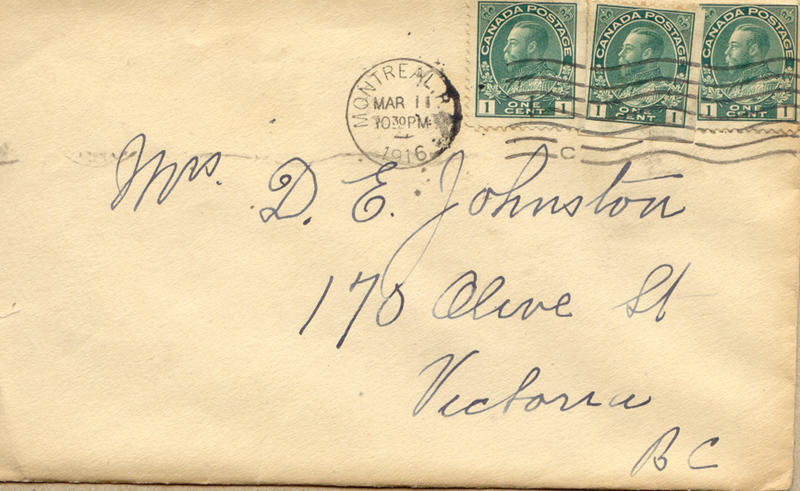 CANADA POSTAGE
1 ONE CENT 1
CANADA POSTAGE
1 ONE CENT 1
CANADA POSTAGE
1 ONE CENT 1
MONTREAL, P
MAR 11
10 30 PM
1916
C
Mrs. D. E. Johnston
170 Olive St
Victoria
BC